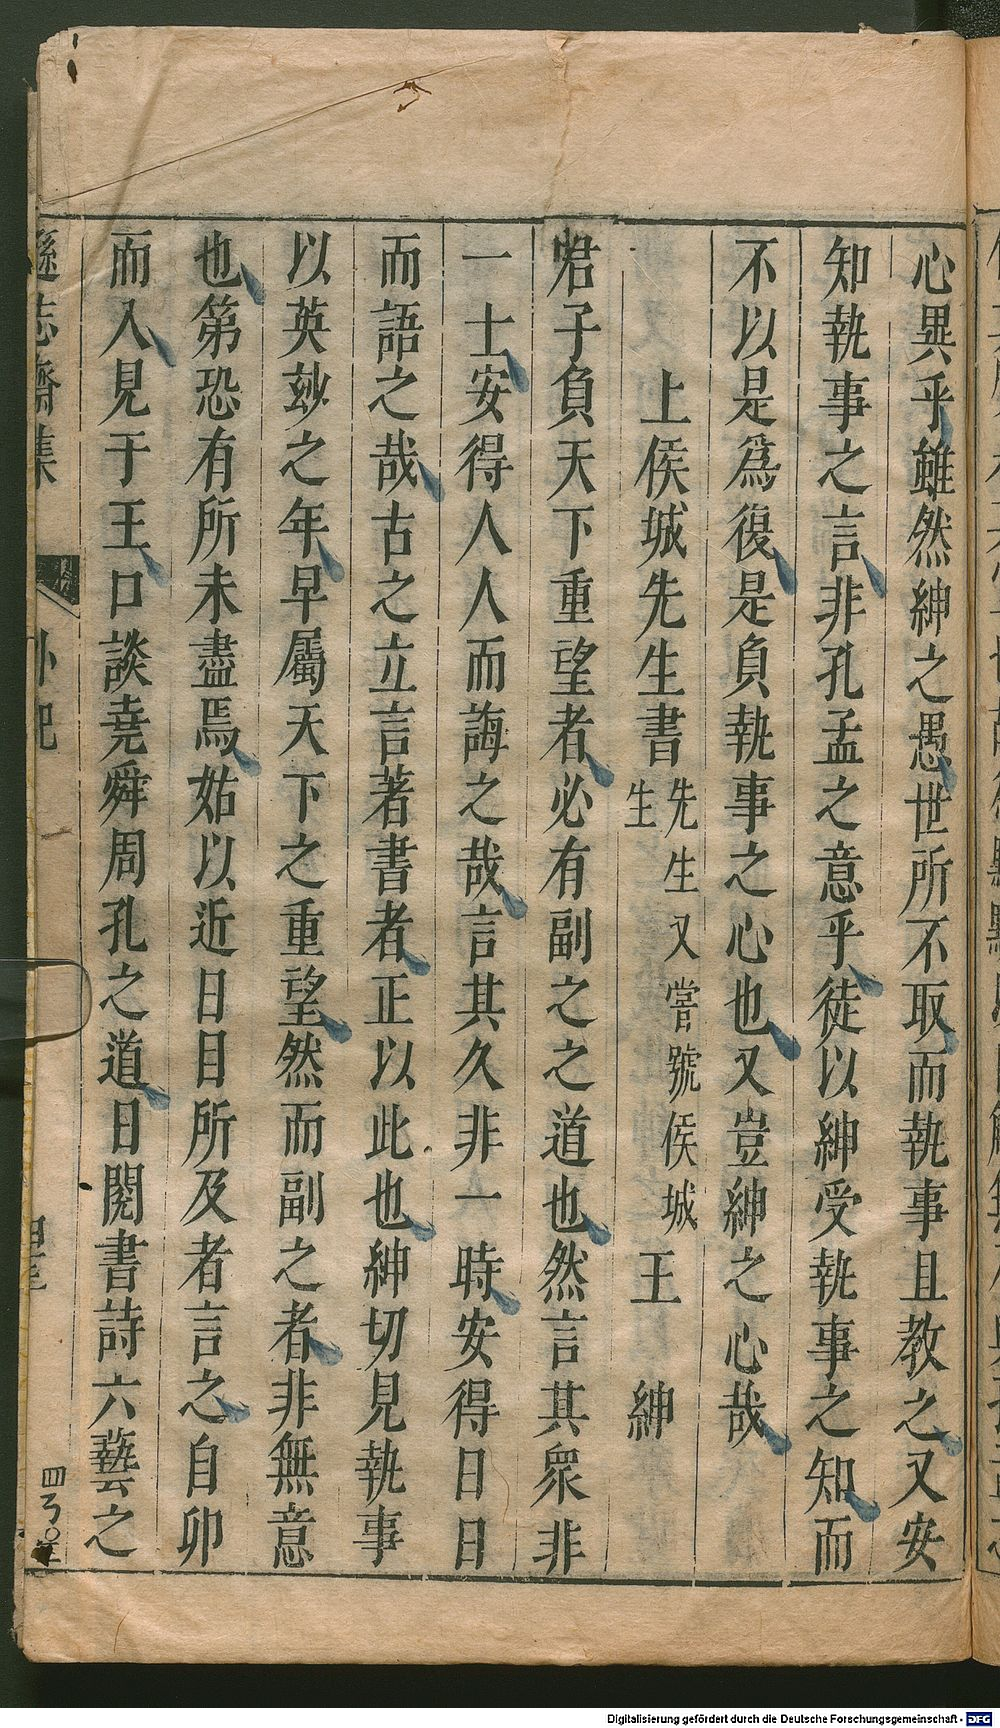 心異乎雖然紳之愚世所不取而執事且教之又安
知執事之言非孔孟之意乎徒以紳受執事之知而
不以是為復是負執事之心也又豈紳之心哉
上侯城先生書
先生又嘗號侯城
生
王紳
君子負天下重望者必有副之之道也然言其眾非
一士安得人人而誨之哉言其久非一時安得日日
而語之哉古之立言著書者正以此也紳切見執事
以英玅之年早屬天下之重望然而副之者非無意
也第恐有所未盡焉姑以近日目所及者言之自卯
而入見于王口談堯舜周孔之道日閱書詩六藝之
遜志齋集
外紀
Digitalisierung gefördert durch die Deutsche Forschungsgemeinschaft - DFG